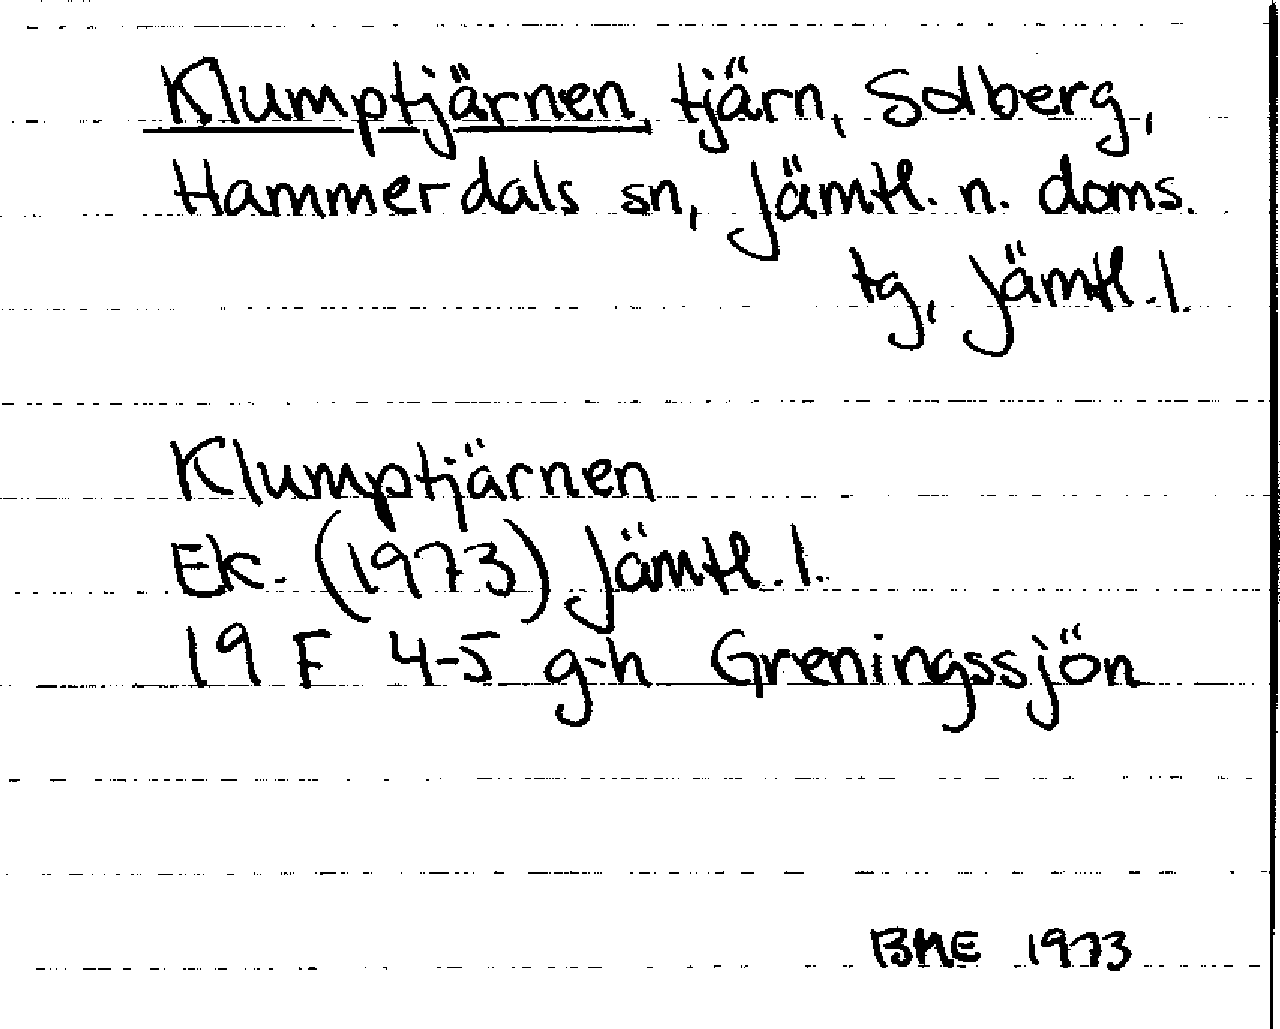 Klumptjärnen, tjärn, Solberg,
Hammerdals sn, Jämtl. n. doms.
tg, Jämtl. l.
Klumptjärnen
Ek. (1973) Jämtl. l.
19 F 4-5 g-h Greningssjön
BME 1973